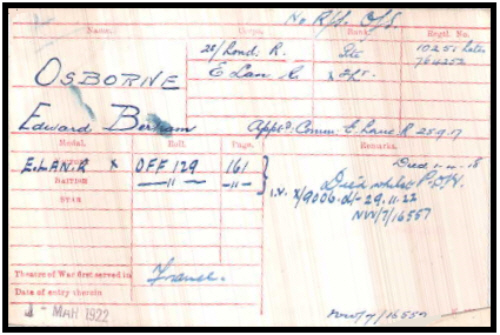 No R/f. O/S.
Name. Corps. Rank. Regtl. No.
28/Lond. R. Pte 10251 later
764252
OSBORNE E Lan R x Lt.
Edward Bertram Appt. Comm. E. Lanc R 25.9.17
Medal. Roll. Page. Remarks.
Died 1-4-18
E.LAN.R x OFF 129 161 Died whilst P.O.W.
BRITISH —11— —11— I.V. X/9006.d/- 29.11.22
STAR NW/7/16557
Theatre of War first served in France.
Date of entry therein
1 - MAR 1922
NW/7/16557